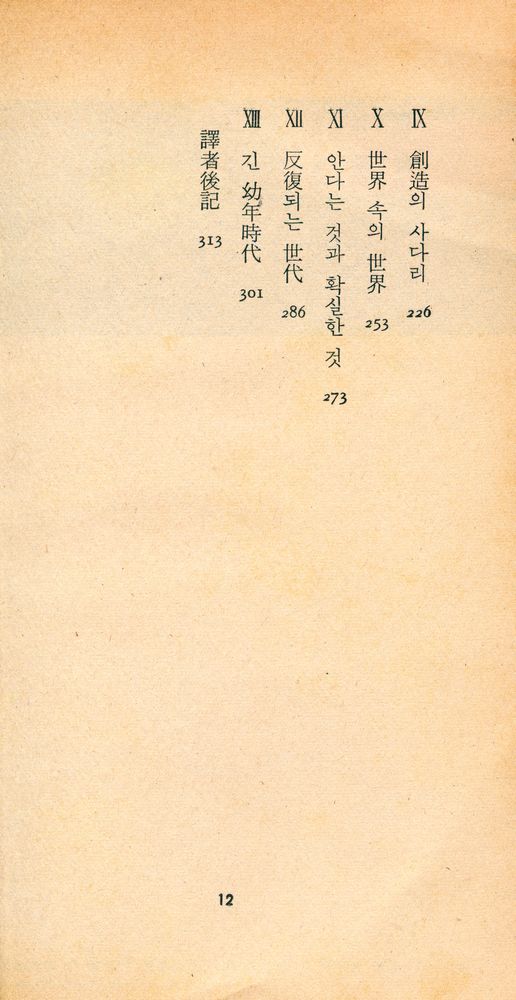 Ⅸ 創造의 사다리 226
Ⅹ 世界 속의 世界 253
Ⅺ 안다는 것과 확실한 것 273
Ⅻ 反復되는 世代 286
XIII 긴 幼年時代 301
譯者後記 313
12